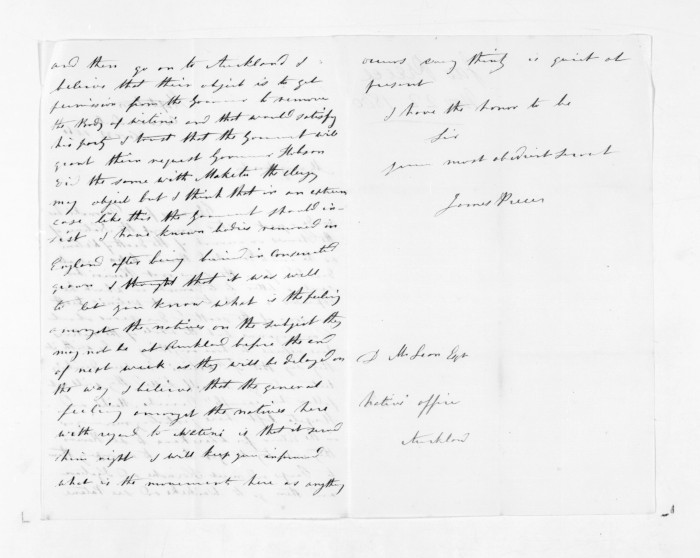 and then go on to Auckland I
believe that their object is to get
permission from the Governor to remove
the Body of Kereteni and that would satisfy
his party I trust that the Goverment will
grant their request Governor Hobson
did the same with Maketu the clergy
may object but I think that in an extrem
case like this the Goverment should in-
sist I have known bodies removed in
England after being buried in Consecrated
groun I thought that it was well
to let you know what is the feeling
amongst the natives on the subject they
may not be at Auckland before the end
of next week as they will be delayed on
the way I believe that the general
feeling amongst the natives here
with regard to is that it send
him right I will keep you informed
what is the movement here as anything
occurs every thing is quiet at
present
I have the honor to be
Sir
your most obedient servant
James Preece
D McLean Esqr
Native office
Auckland